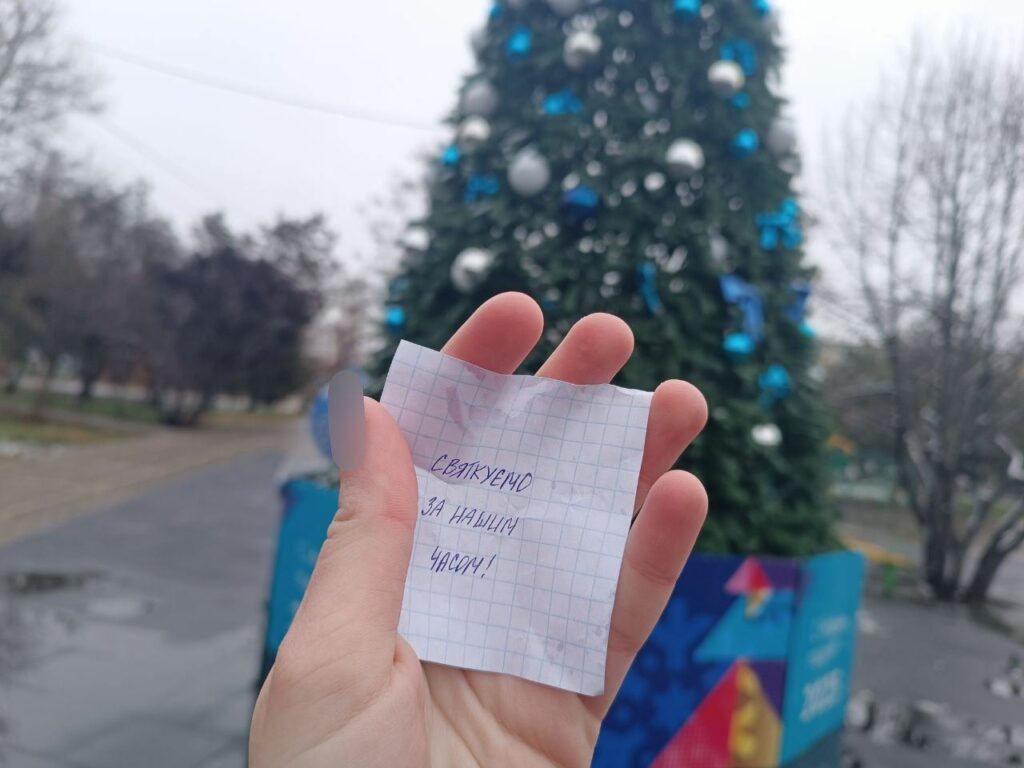 СВЯТКУЄМО
ЗА НАШИМ
ЧАСОМ!
2025